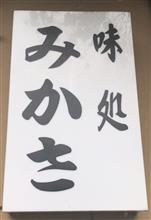 味処
みかさ